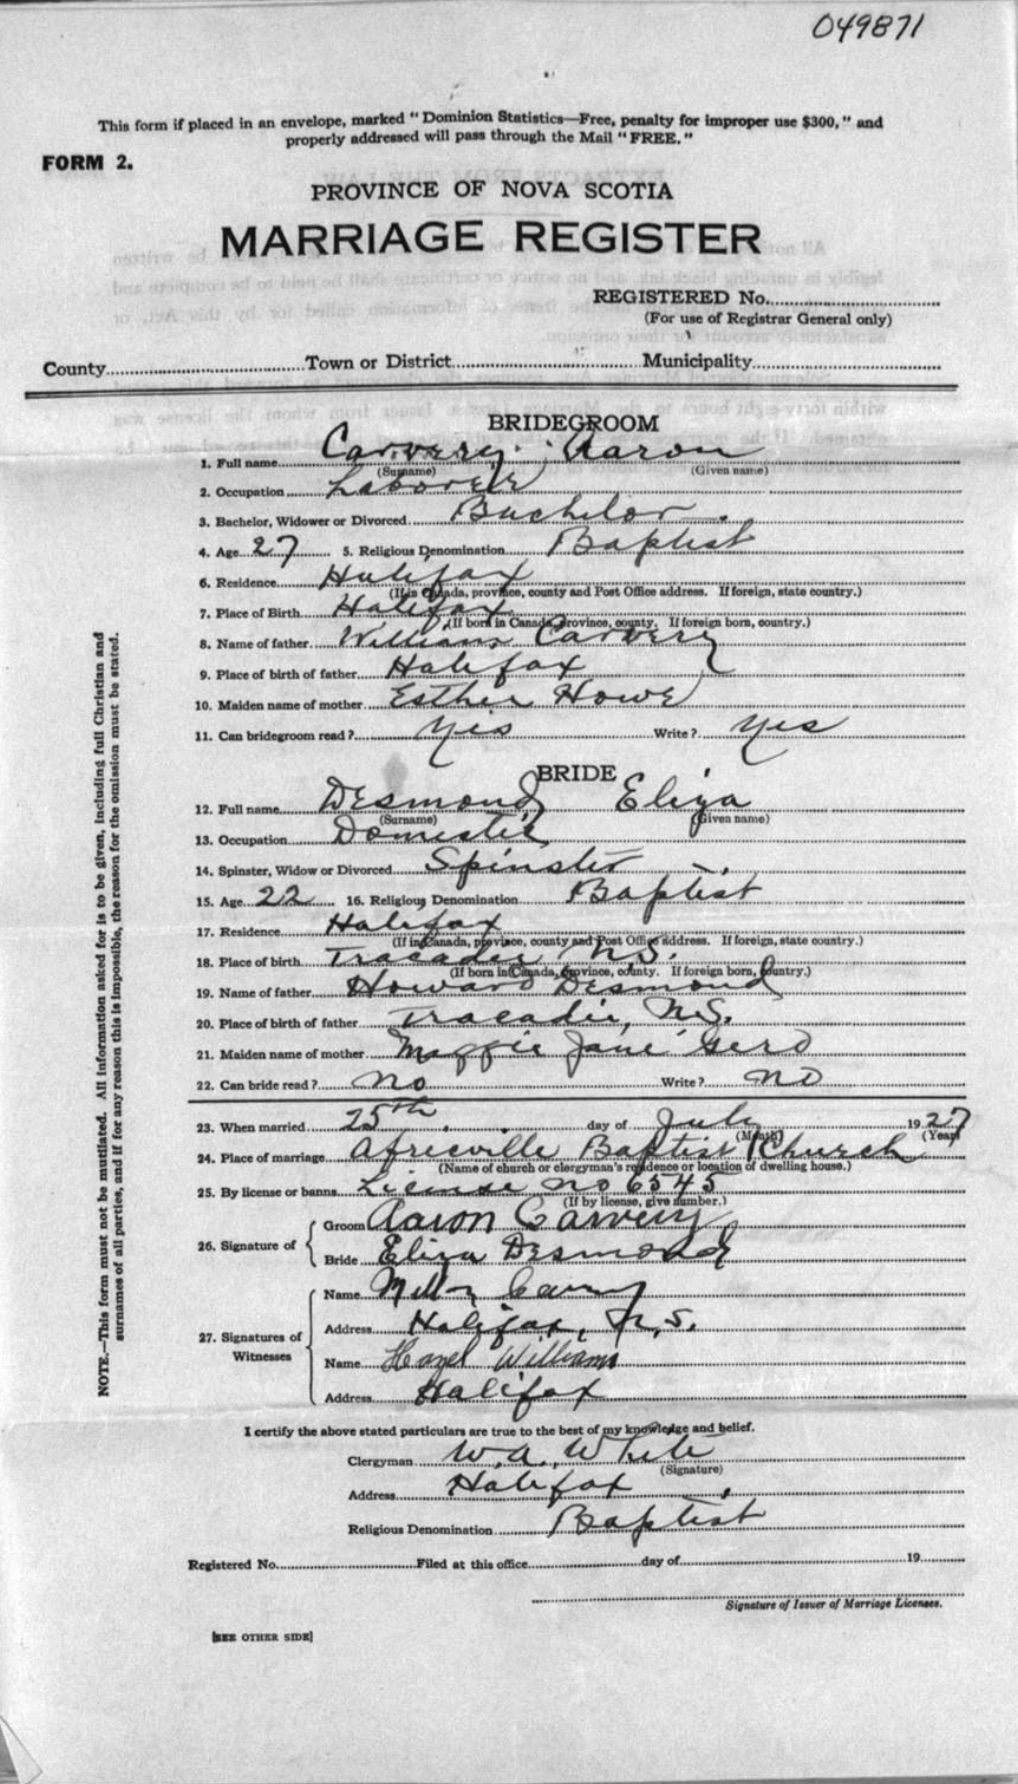 049871
This form if placed in an envelope, marked "Dominion Statistics—Free, penalty for improper use $300," and
properly addressed will pass through the Mail "FREE."
FORM 2.
PROVINCE OF NOVA SCOTIA
MARRIAGE REGISTER
REGISTERED No.
(For use of Registrar General only)
County Town or District Municipality
BRIDEGROOM
1. Full name Carvery, Aaron
(Surname) (Given name)
2. Occupation Laborer
3. Bachelor, Widower or Divorced Bachelor
4. Age 27 5. Religious Denomination Baptist
6. Residence Halifax
(If in Canada, province, county and Post Office address. If foreign, state country.)
7. Place of Birth Halifax
(If born in Canada, province, county. If foreign born, country.)
8. Name of father William Carvery
9. Place of birth of father Halifax
10. Maiden name of mother Esther Howe
11. Can bridegroom read? Yes Write? Yes
BRIDE
12. Full name Desmond Eliza
(Surname) (Given name)
13. Occupation Domestic
14. Spinster, Widow or Divorced Spinster
15. Age 22 16. Religious Denomination Baptist
17. Residence Halifax
(If in Canada, province, county and Post Office address. If foreign, state country.)
18. Place of birth Tracadie N.S.
(If born in Canada, province, county. If foreign born, country.)
19. Name of father Howard Desmond
20. Place of birth of father Tracadie, N.S.
21. Maiden name of mother Maggie Jane Gero
22. Can bride read? no Write? no
23. When married 25th day of July 1927
(Month) (Year)
24. Place of marriage Africville Baptist Church
(Name of church or clergyman's residence or location of dwelling house.)
25. By license or banns License no 6545
(If by license, give number.)
26. Signature of
Groom Aaron Carvery
Bride Eliza Desmond
27. Signatures of Witnesses
Name
Address Halifax, N.S.
Name Hazel Williams
Address Halifax
I certify the above stated particulars are true to the best of my knowledge and belief.
Clergyman W.A. White
(Signature)
Address Halifax
Religious Denomination Baptist
Registered No. Filed at this office day of 19
Signature of Issuer of Marriage Licenses.
[SEE OTHER SIDE]
NOTE.—This form must not be mutilated. All information asked for is to be given, including full Christian and
surnames of all parties, and if for any reason this is impossible, the reason for the omission must be stated.